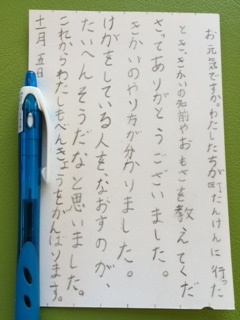 お元気ですか。わたしたちが町たんけんに行った
とき、きかいの名前やおもさを教えてくだ
さってありがとうございました。
きかいのやり方が分かりました。
けがをしている人をなおすのが、
たいへんそうだなと思いました。
これからわたしもべんきょうをがんばります。
十一月五日